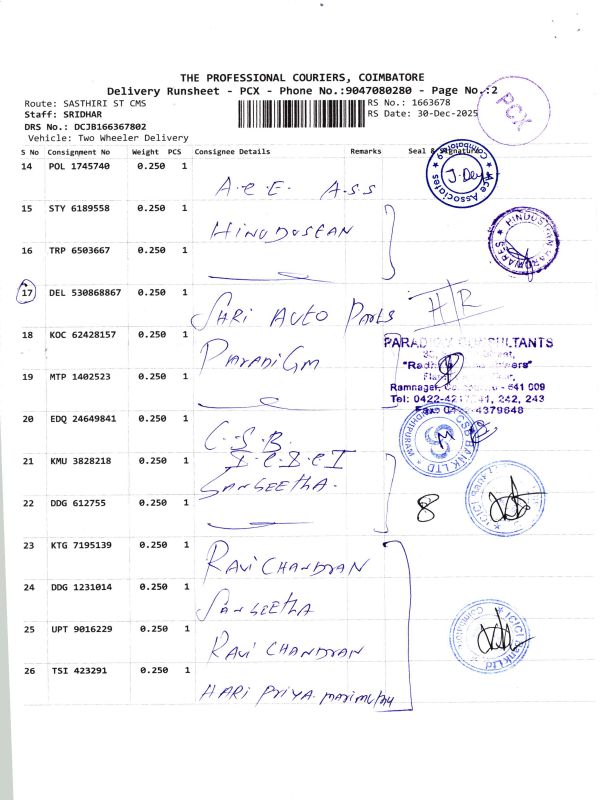 THE PROFESSIONAL COURIERS, COIMBATORE
Delivery Runsheet - PCX - Phone No.:9047080280 - Page No.:2
Route: SASTHIRI ST CMS
RS No.: 1663678
Staff: SRIDHAR
RS Date: 30-Dec-2025
DRS No.: DCJB166367802
Vehicle: Two Wheeler Delivery
PCX
S No Consignment No Weight PCS Consignee Details Remarks Seal & Signature
14 POL 1745740 0.250 1 A.C.E. A.S.S
Ace Associates Coimbatore-9
15 STY 6189558 0.250 1 HINDUSTAN
HINDUSTAN
16 TRP 6503667 0.250 1
17 DEL 530868867 0.250 1 SHRI AUTO Parts H/R
18 KOC 62428157 0.250 1 ParadiGm
PARADIGM CONSULTANTS
Ramnagar, - 641 009
Tel: 0422- 242, 243
4379648
19 MTP 1402523 0.250 1
20 EDQ 24649841 0.250 1 C.S.B.
CSB BANK LTD
GANDHIPURAM
21 KMU 3828218 0.250 1 I.C.I.C.I
SANGEETHA.
22 DDG 612755 0.250 1 8
ICICI
23 KTG 7195139 0.250 1 RAVI CHANDRAN
24 DDG 1231014 0.250 1 SANGEETHA
25 UPT 9016229 0.250 1 RAVI CHANDRAN
ICICI Bank Ltd
26 TSI 423291 0.250 1 HARI PRIYA. MARIMUTHU